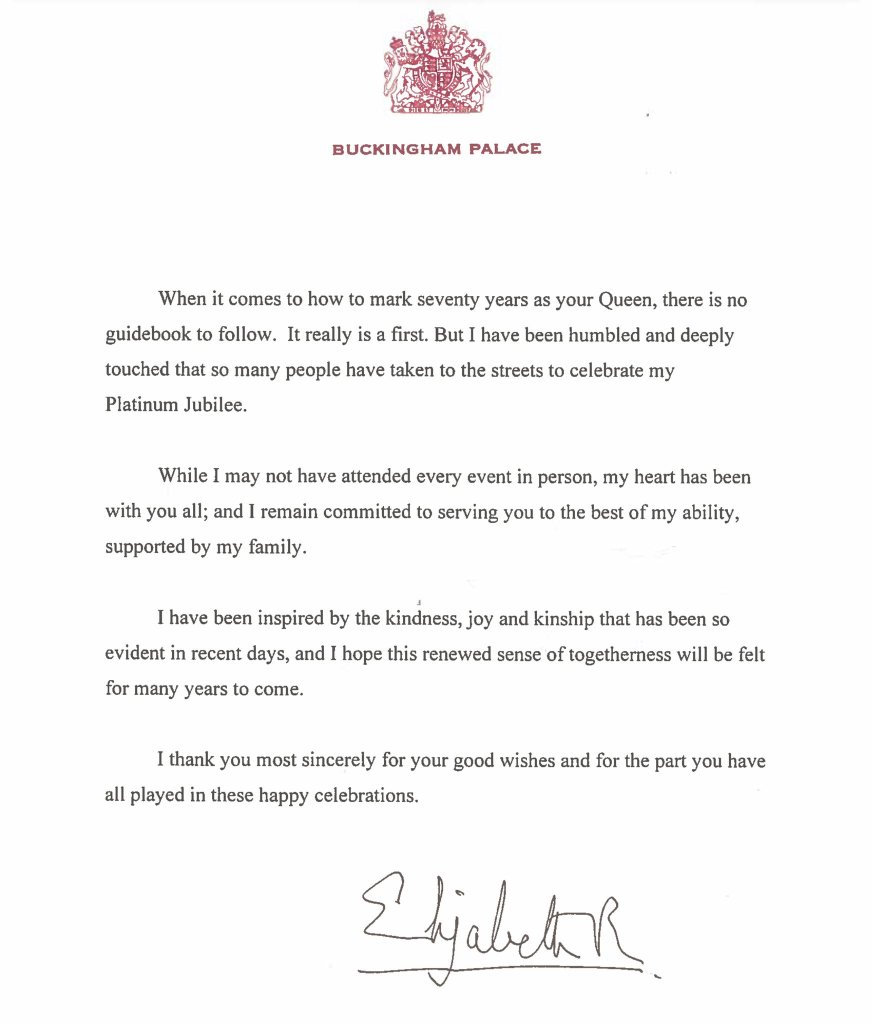 BUCKINGHAM PALACE
When it comes to how to mark seventy years as your Queen, there is no
guidebook to follow.  It really is a first. But I have been humbled and deeply
touched that so many people have taken to the streets to celebrate my
Platinum Jubilee.
While I may not have attended every event in person, my heart has been
with you all; and I remain committed to serving you to the best of my ability,
supported by my family.
I have been inspired by the kindness, joy and kinship that has been so
evident in recent days, and I hope this renewed sense of togetherness will be felt
for many years to come.
I thank you most sincerely for your good wishes and for the part you have
all played in these happy celebrations.
Elizabeth R